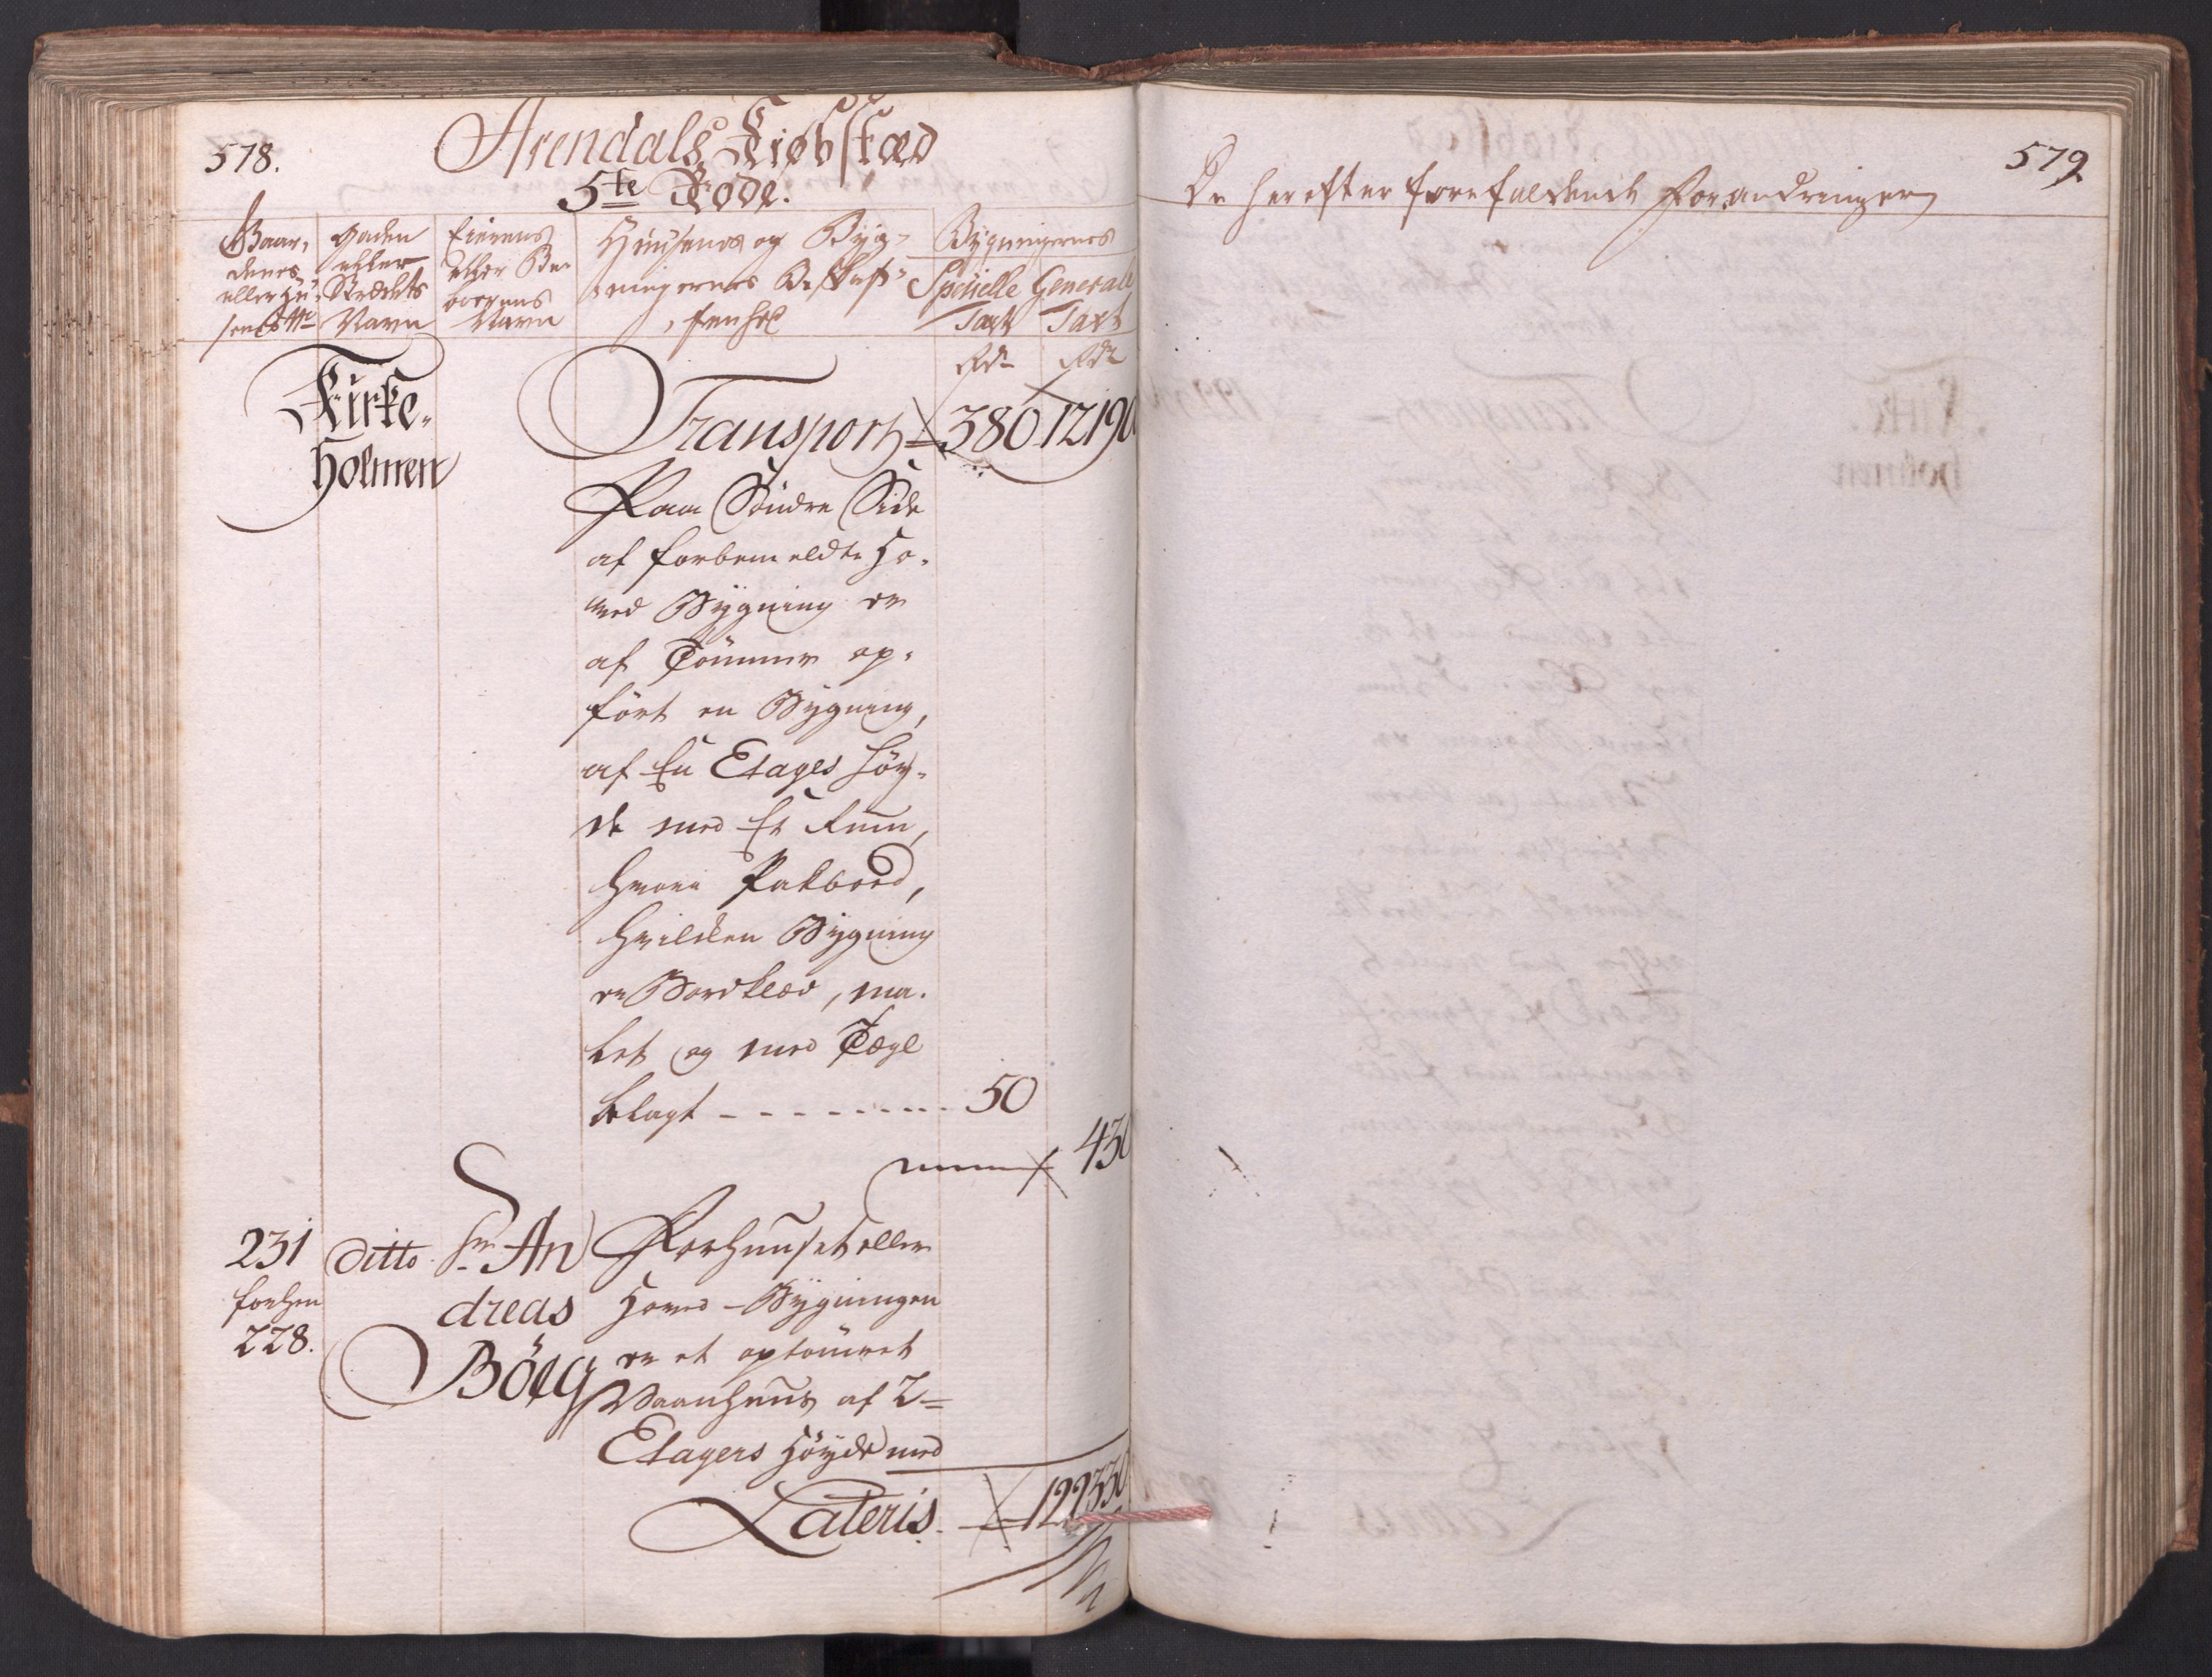 578.
Arendals Kiøbstæd
5te Rode.
Gaar-
denes
eller Hu-
senes No
Gaden
eller
Strædets
Navn
Eierens
eller Be-
boerens
Navn
Huusenes og Byg-
ningernes Beskaf-
fenhed
Bygningernes
Specielle Taxt
Generale Taxt
Rdr Rdr
Kirke-
holmen
Transport 380 12190
Paa Søndre Side
af forbemeldte Ho-
ved Bygning er
af Tömmer op-
fört en Bygning,
af En Etages Höy-
de med Et Rum,
hvori Pakboed,
hvilken Bygning
er Bordklæd, ma-
let og med Tægl
belagt - - - - - - - - 50
430
231
forhen
228.
ditto
Sr An
dreas
Böeg
Forhuuset eller
Hoved-Bygningen
er et optömret
Vaanhuus af 2
Etagers Höyde med
Lateris. 12
579
De herefter forefaldende Forandringer